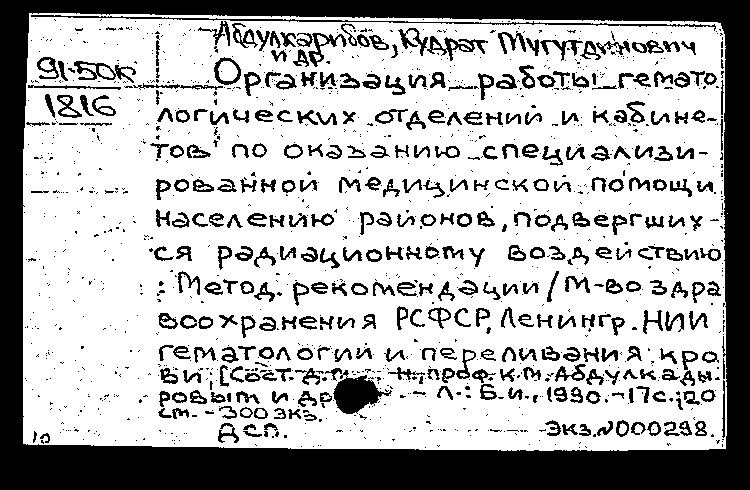 Абдулкадыров, Кудрат Мугутдинович
и др.
91-50к
1816
Организация работы гемато
логических отделений и кабине-
тов по оказанию специализи-
рованной медицинской помощи
населению районов, подвергших-
ся радиационному воздействию
: Метод. рекомендации / М-во здра
воохранения РСФСР, Ленингр. НИИ
гематологии и переливания кро
ви; [Сост. д.м. н., проф. К.М. Абдулкады.
ровым и др - Л.: Б.и., 1990. - 17с.; 20
см. - 300 экз.
ДСП. Экз. N000298.
10